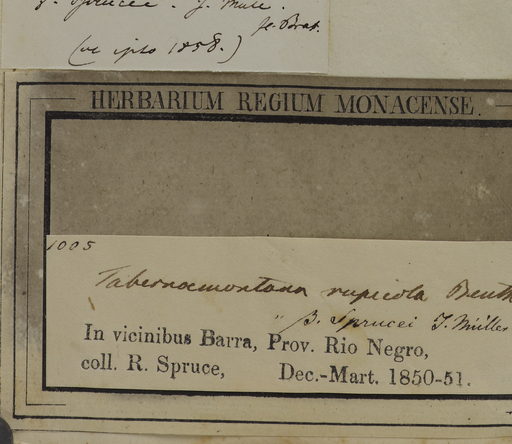 Sprucei. J. Müll.
fl. Bras.
(ex ipso 1858.)
HERBARIUM REGIUM MONACENSE.
1005
Tabernaemontana rupicola Benth
" β. Sprucei J. Müller
In vicinibus Barra, Prov. Rio Negro,
coll. R. Spruce, Dec.-Mart. 1850-51.